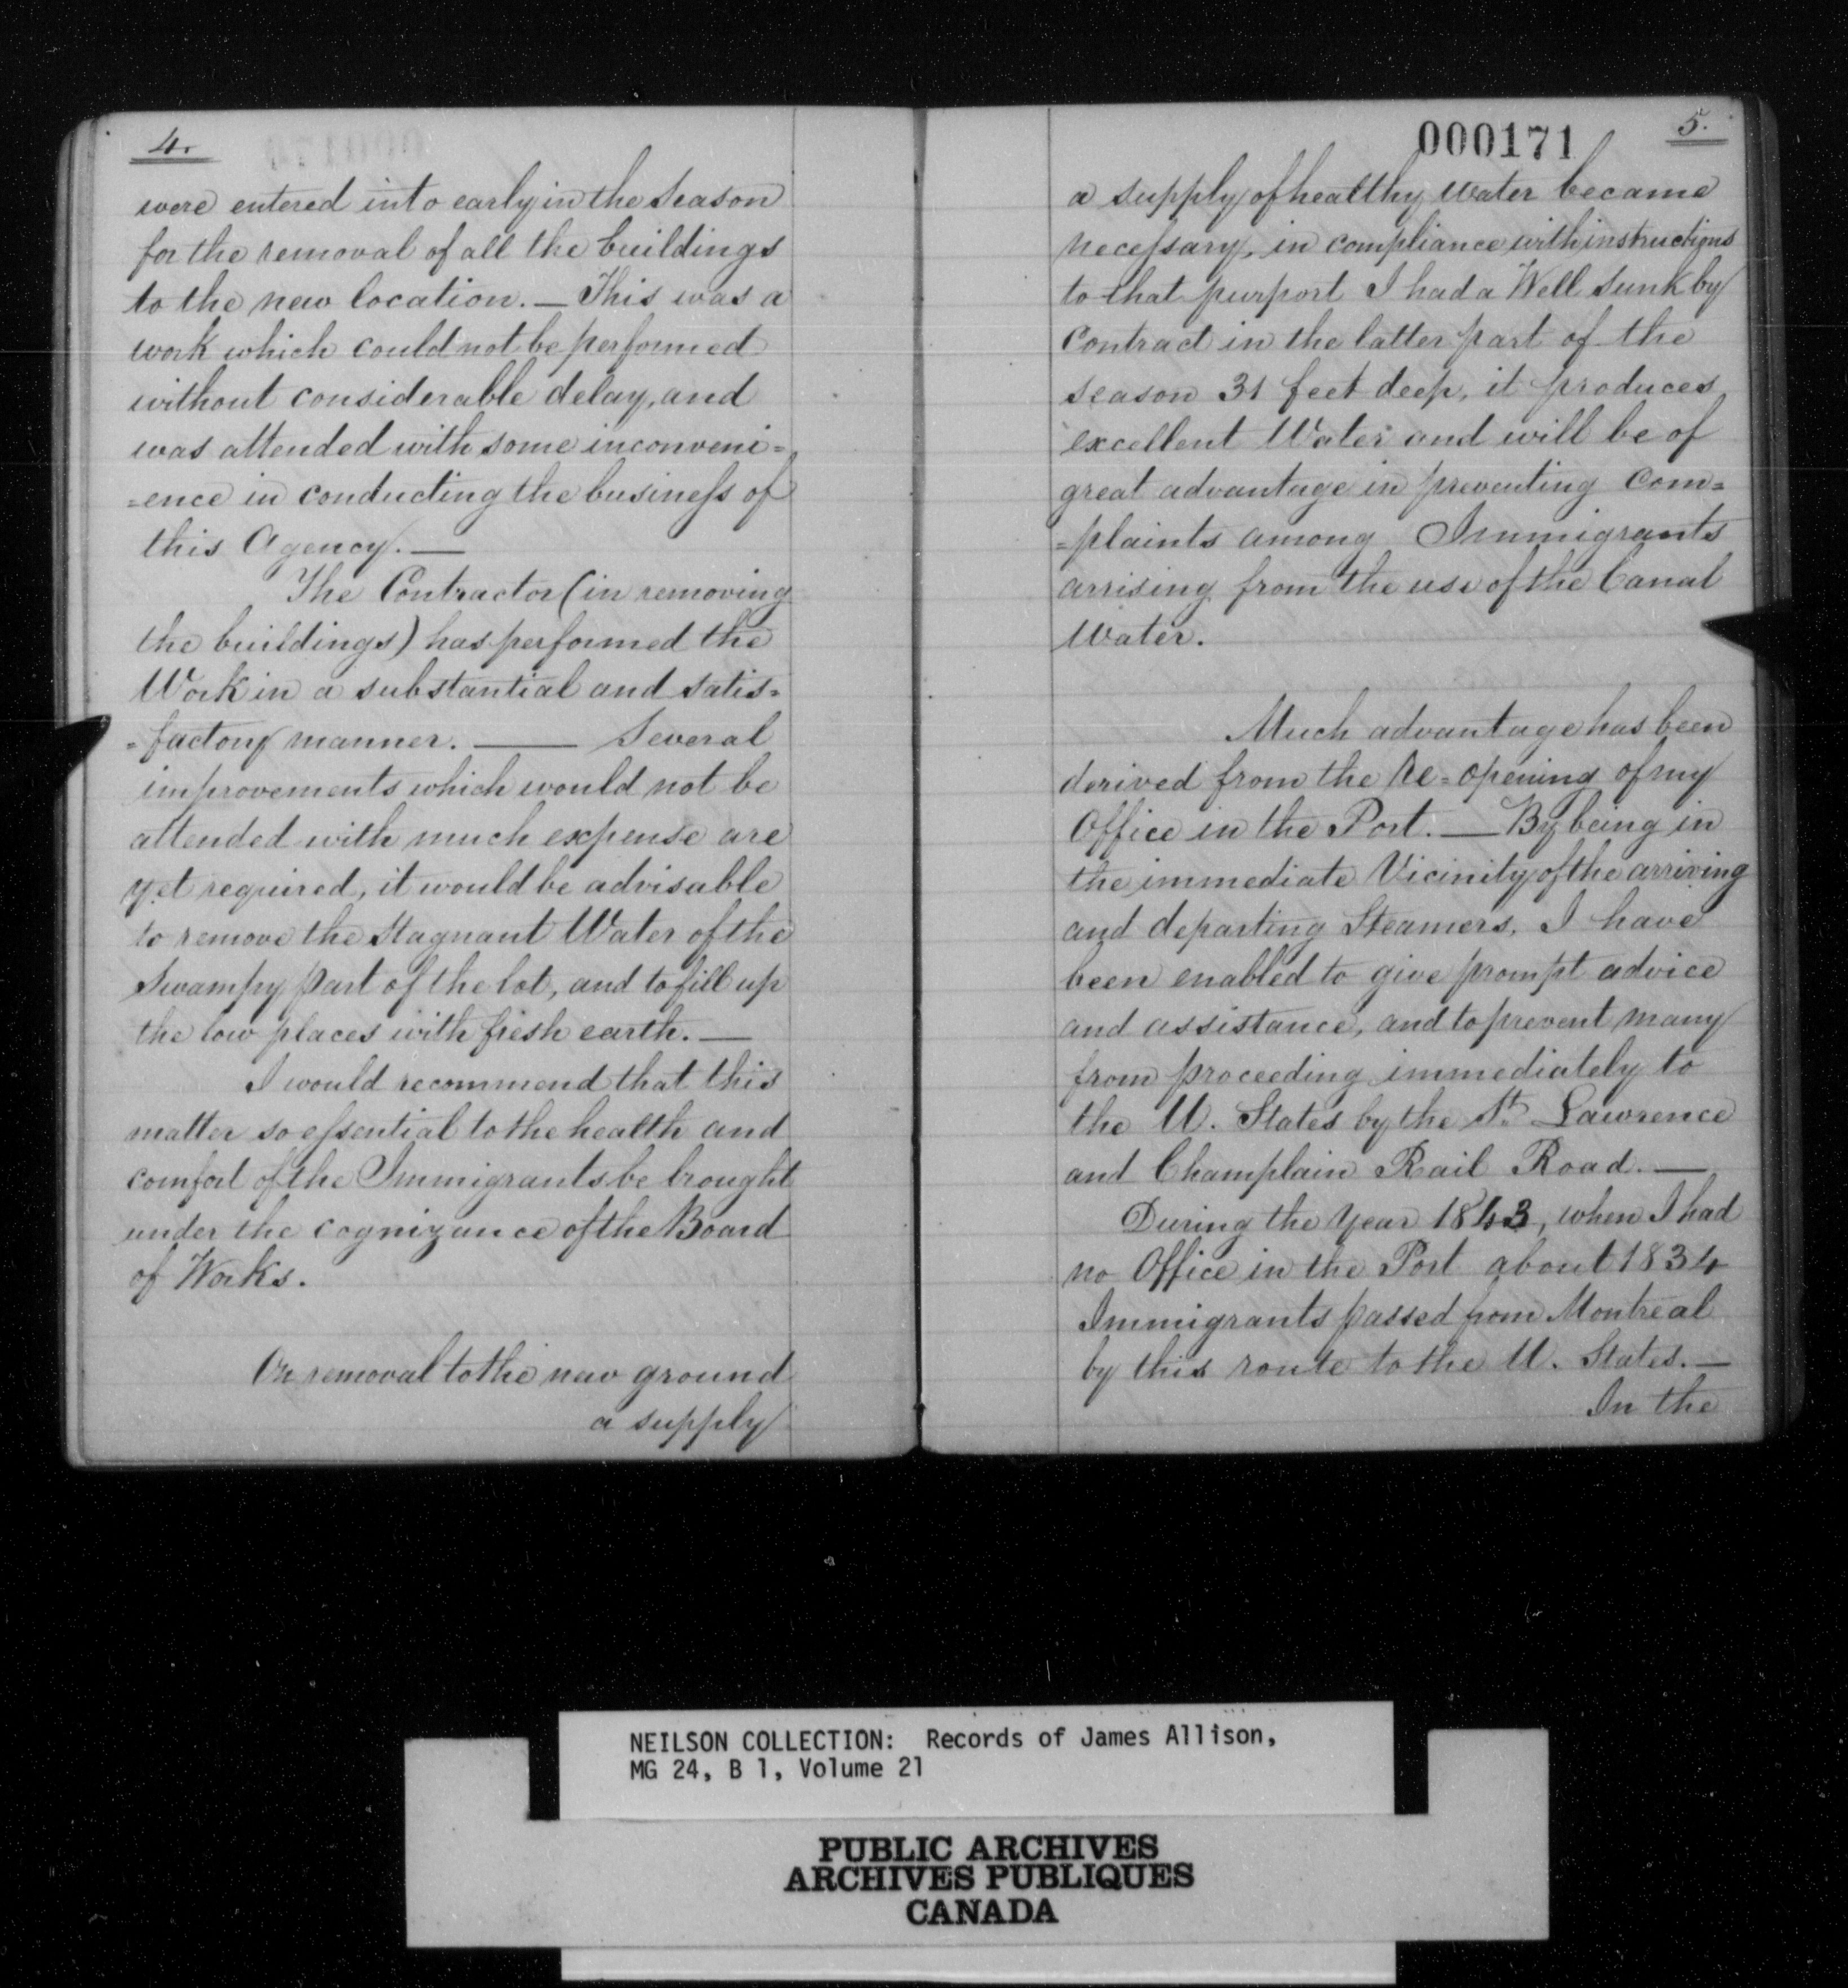 4.
were entered into early in the Season
for the removal of all the buildings
to the new location. — This was a
work which could not be performed
without considerable delay, and
was attended with some inconveni=
=ence in conducting the busineſs of
this Agency. —
The Contractor (in removing
the buildings) has performed the
Work in a substantial and satis=
=factory manner. — Several
improvements which would not be
attended with much expense are
yet required, it would be advisable
to remove the Stagnant Water of the
Swampy part of the lot, and to fill up
the low places with fresh earth. —
I would recommend that this
matter so eſsential to the health and
comfort of the Immigrants be brought
under the cognizance of the Board
of Works.
On removal to the new ground
a supply
000171
5.
a supply of healthy water became
neceſsary, in compliance with instructions
to that purport I had a Well sunk by
Contract in the latter part of the
season 31 feet deep, it produces
excellent Water and will be of
great advantage in preventing Com=
=plaints among Immigrants
arrising from the use of the Canal
Water.
Much advantage has been
derived from the Re=opening of my
Office in the Port. — By being in
the immediate Vicinity of the arriving
and departing Steamers, I have
been enabled to give prompt advice
and assistance, and to prevent many
from proceeding immediately to
the U. States by the St. Lawrence
and Champlain Rail Road. —
During the Year 1843, when I had
no Office in the Port about 1834
Immigrants passed from Montreal
by this route to the U. States. —
In the
NEILSON COLLECTION: Records of James Allison,
MG 24, B 1, Volume 21
PUBLIC ARCHIVES
ARCHIVES PUBLIQUES
CANADA